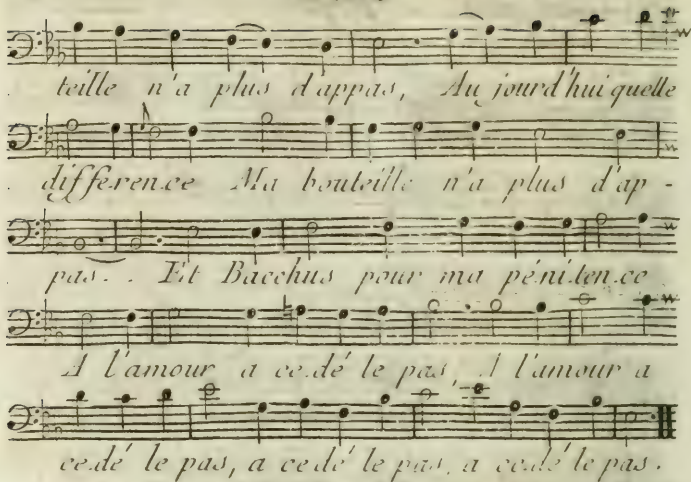 teille n'a plus d'appas, Au jourd'hui quelle
diffe.ren.ce Ma bouteille n'a plus d'ap-
pas.. Et Bacchus pour ma péni.ten.ce
A l'amour a ce.dé le pas, A l'amour a
ce.dé le pas, a ce.dé le pas, a ce.dé le pas.